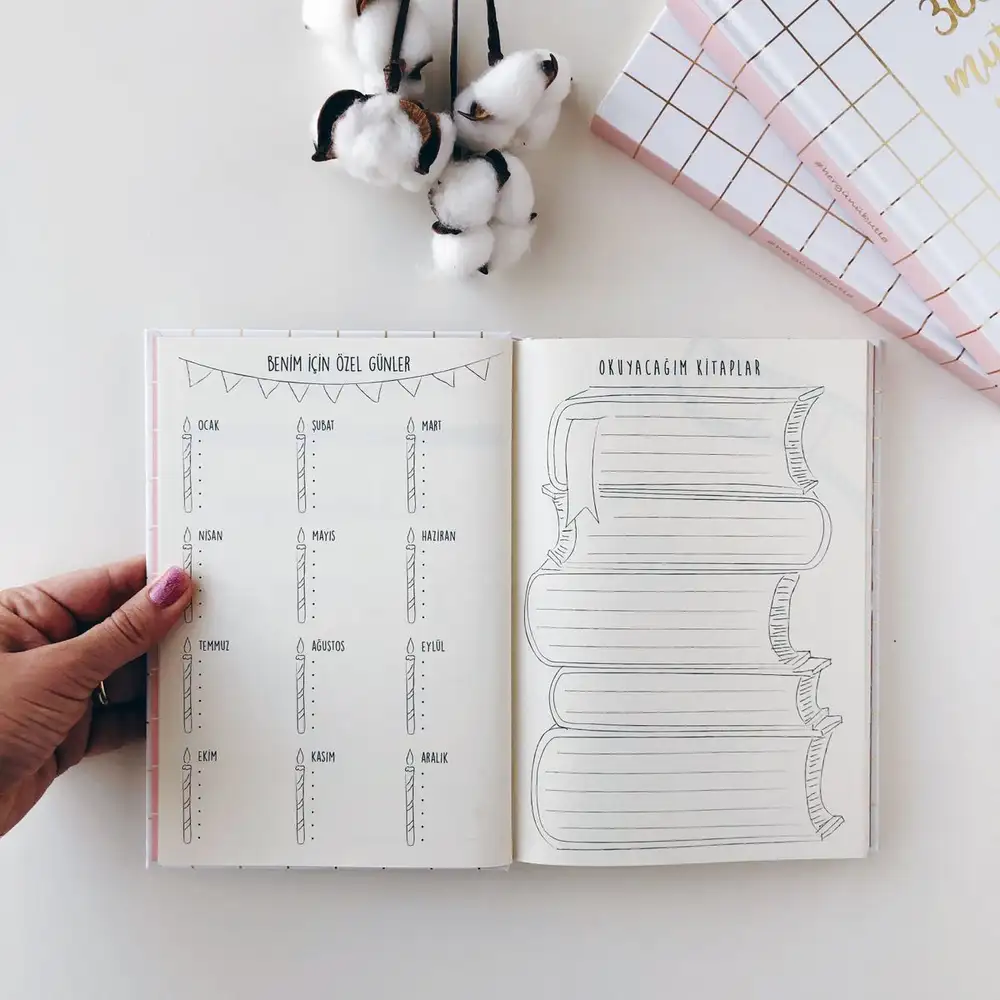 BENİM İÇİN ÖZEL GÜNLER
OCAK
ŞUBAT
MART
NİSAN
MAYIS
HAZİRAN
TEMMUZ
AĞUSTOS
EYLÜL
EKİM
KASIM
ARALIK
OKUYACAĞIM KİTAPLAR
#hergünükutla
#hergünükutla